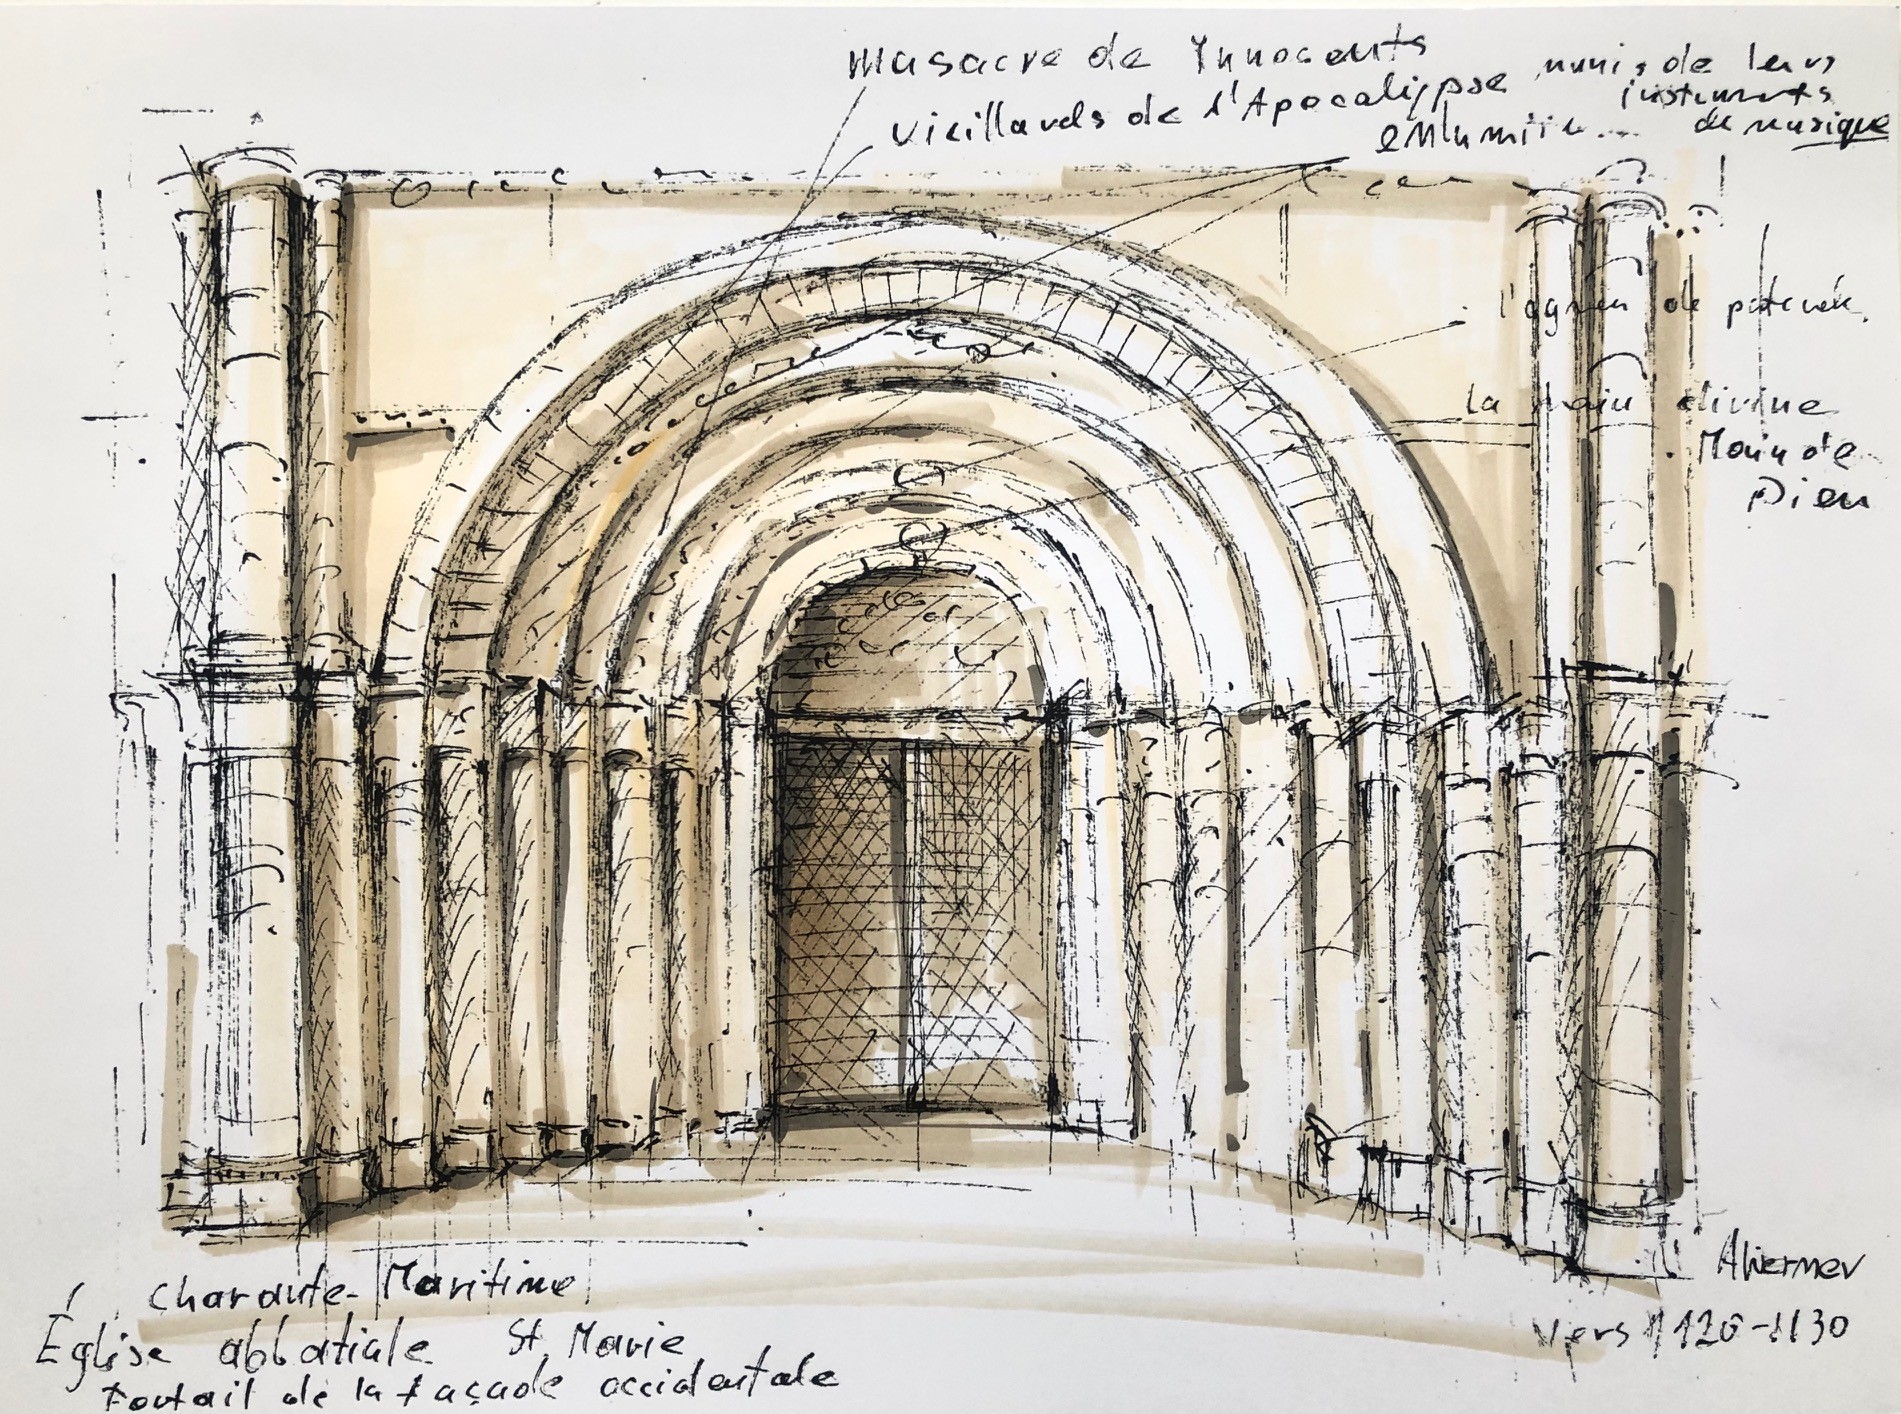 Masacre de Innocents
vieillards de l'Apocalipse munis de leurs
instuments
de musique
l'agneu de
la main divine
Main de
Dieu
Charante-Maritime
Église abbatiale St. Marie
Portail de la façade occidentale
AWerner
vers 1120-1130